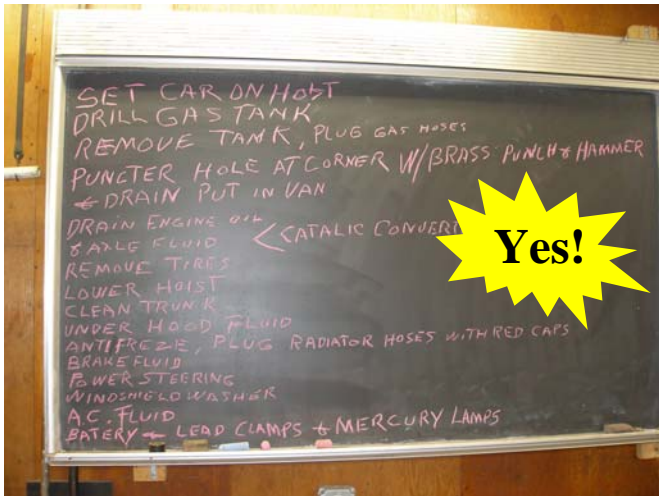 SET CAR ON HOIST
DRILL GAS TANK
REMOVE TANK, PLUG GAS HOSES
PUNCTER HOLE AT CORNER W/BRASS PUNCH & HAMMER
& DRAIN PUT IN VAN
DRAIN ENGINE OIL
& AXLE FLUID < CATALIC CONVERT
REMOVE TIRES
LOWER HOIST
CLEAN TRUNK
UNDER HOOD FLUID
ANTIFREZE, PLUG RADIATOR HOSES WITH RED CAPS
BRAKE FLUID
POWER STEERING
WINDSHIELD WASHER
A.C. FLUID
BATERY & LEAD CLAMPS & MERCURY LAMPS
Yes!